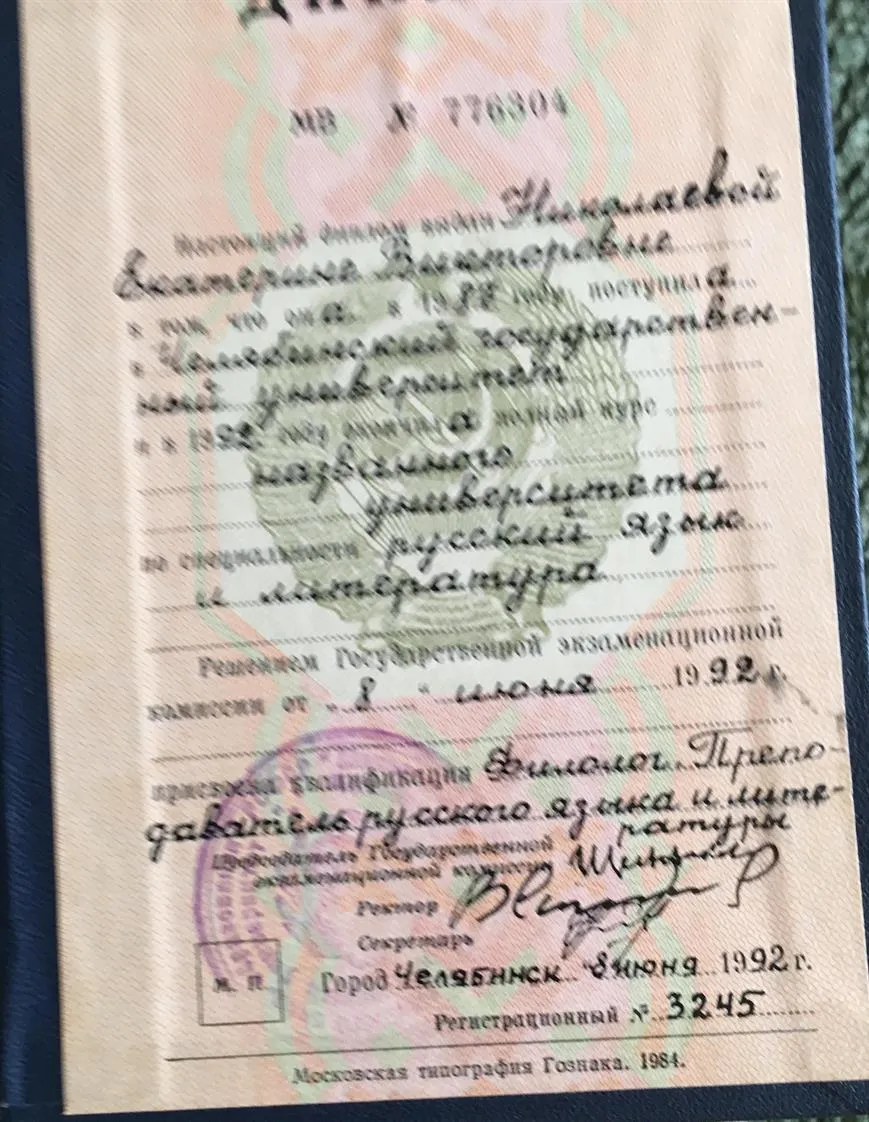 МВ № 776304
Настоящий диплом выдан Николаевой
Екатерине Викторовне
в том, что она в 1987 году поступила
в Челябинский государствен-
ный университет
и в 1992 году окончила полный курс
названного
университета
по специальности русский язык
и литература
Решением Государственной экзаменационной
комиссии от „8“ июня 1992 г.
присвоена квалификация Филолог. Препо-
даватель русского языка и лите-
ратуры
Председатель Государственной
экзаменационной комиссии
Ректор
Секретарь
М. П.
Город Челябинск 8 июня 1992 г.
Регистрационный № 3245
Московская типография Гознака. 1984.